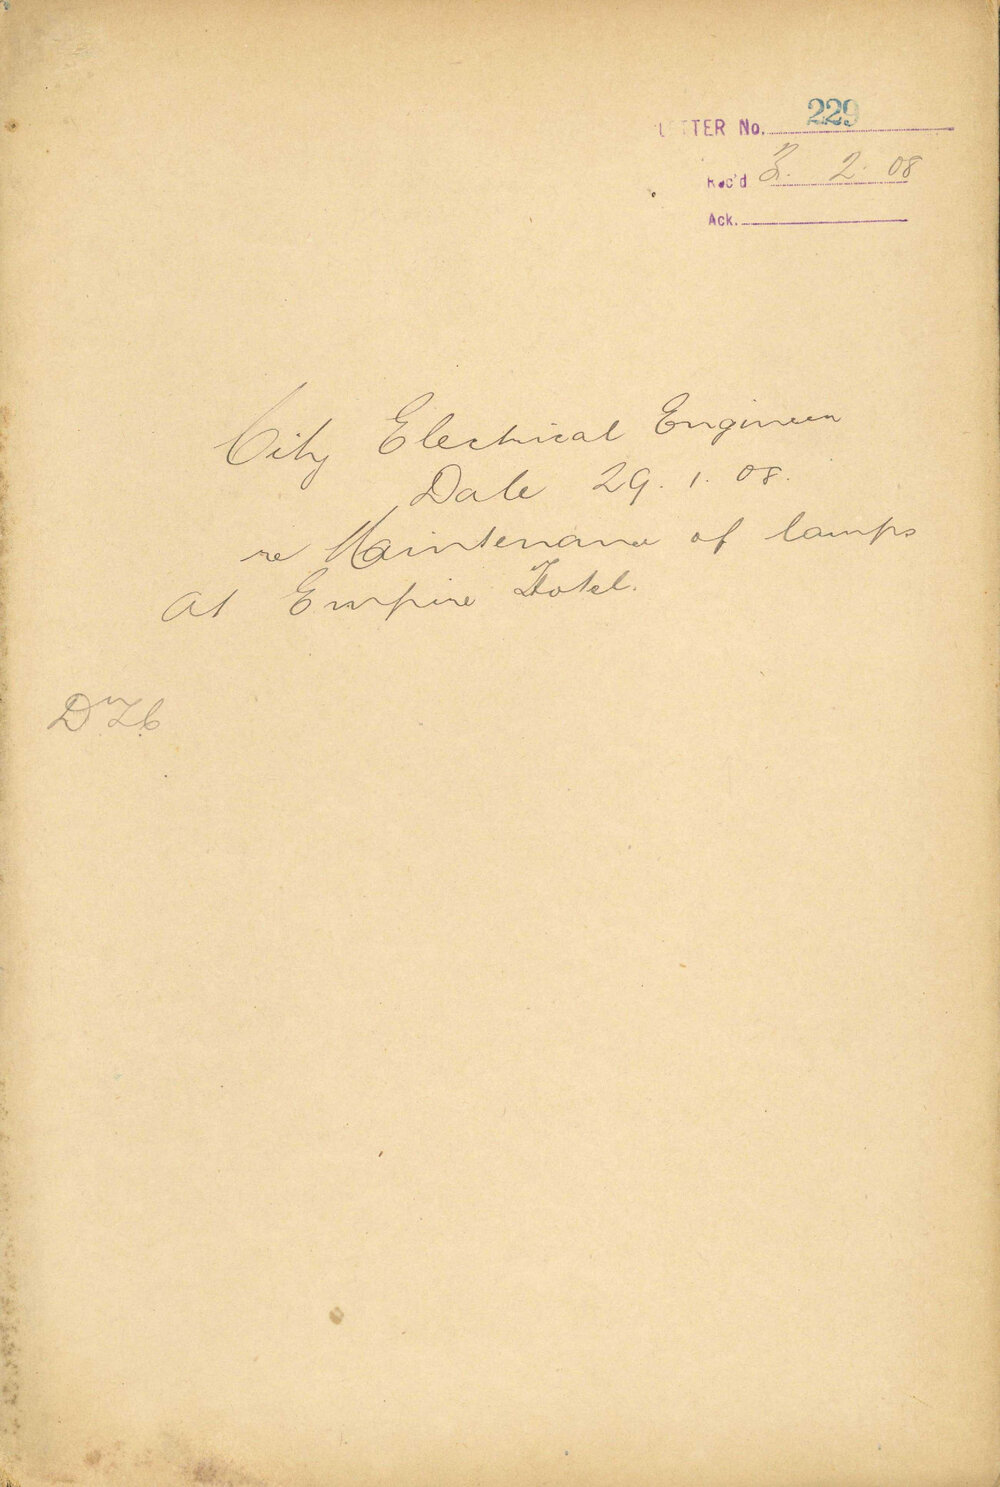 LETTER No. 229
Rec'd 3. 2. 08
Ack.
City Electrical Engineer
Date 29. 1. 08.
re Maintenance of lamps
at Empire Hotel.